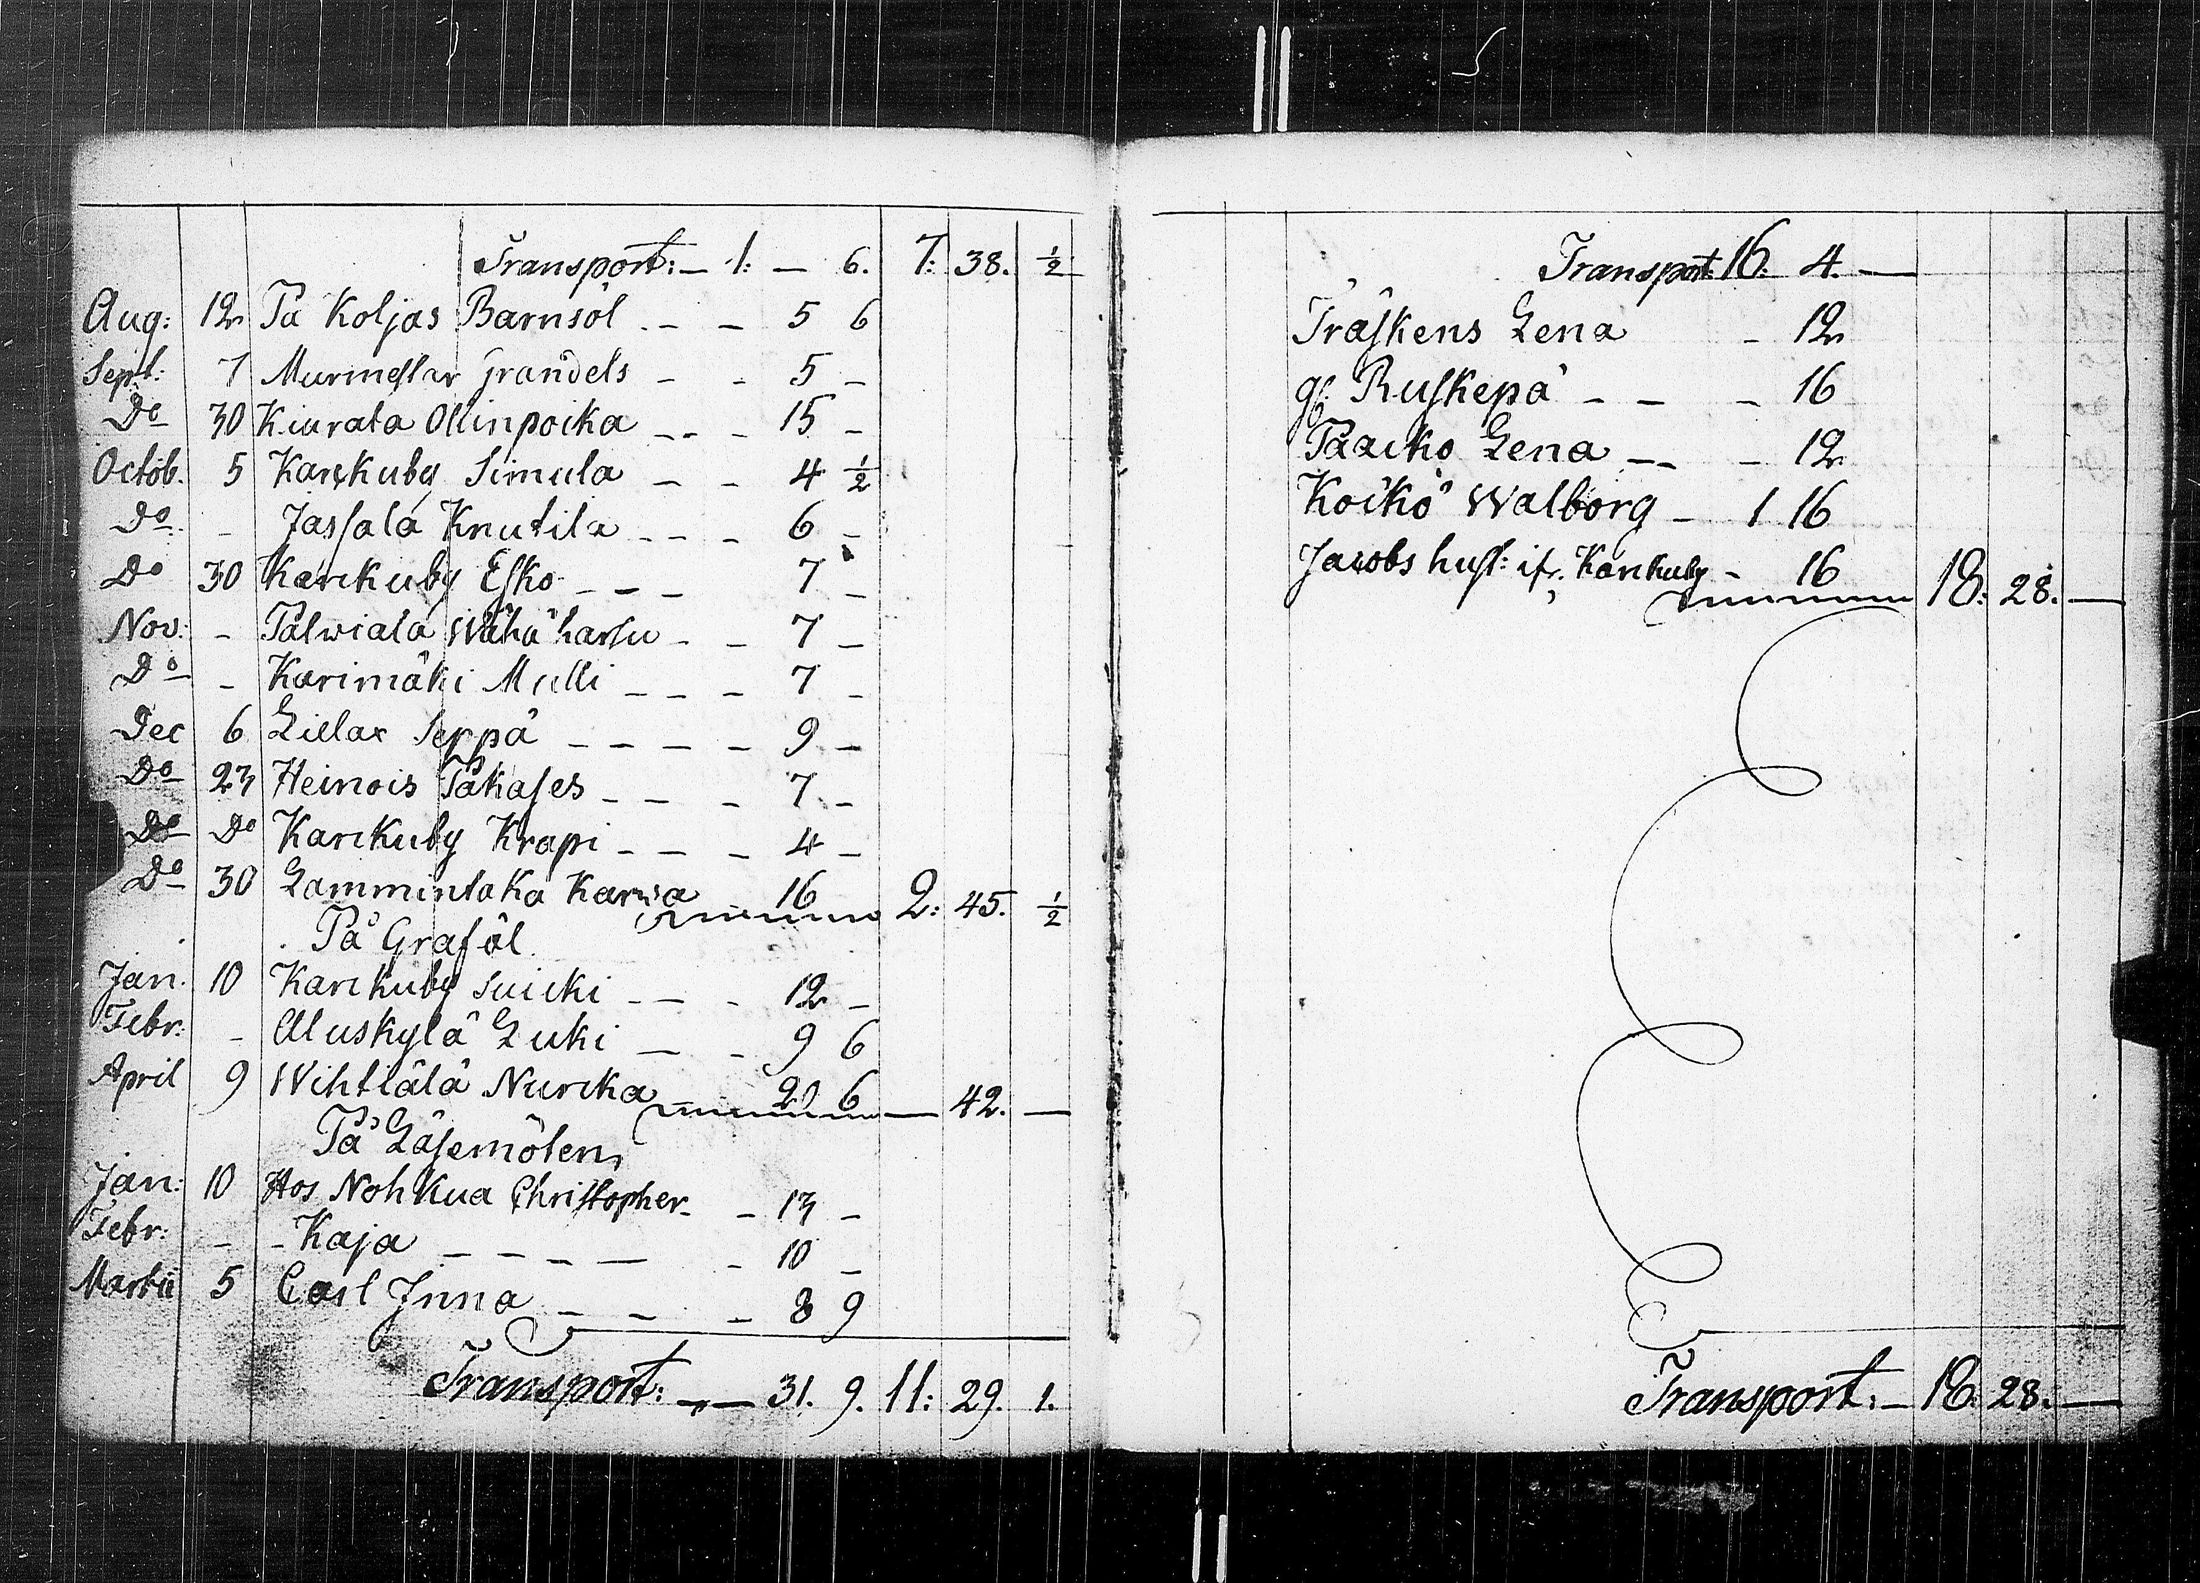 Transport: — 1: — 6. 7: 38. ½
Aug: 12 På Koljas Barnsöl — — 5 6
Sept: 7 Murmestar Grandels — - 5 —
Do 30 Kiurala Ollinpoika — - - 15 —
Octob. 5 Karkuby Simula — - 4 ½
Do — Jassala Knutila — - - 6 —
Do 30 Karkuby Esko — — — 7 —
Nov: — Palwiala Wähä hassu - - 7 —
Do — Karimäki Mulli — — — 7 —
Dec 6 Lillax Seppä — — — — 9 —
Do 23 Heinois Takases — — — 7 —
Do Do Karkuby Krapi — — — 4 —
Do 30 Lammintaka Karwa 16 2: 45. ½
På Graföl
Jan. 10 Karkuby Suicki — — - 12 —
Febr: — Aluskylä Luki — - 9 6
April 9 Wihtiälä Nurcka 20 6 — 42. —
På Läsemöten
Jan: 10 Hos Nohkua Christopher - — 13 —
Febr: — - Kaja — — — — - 10 —
Martii 5 Carl Inna — — — 8 9
Transport: — — 31. 9. 11: 29. 1.
Transport: 16: 4. —
Träskens Lena - 12
gl. Ruskepä — — — 16
Paacko Lena — - — 12
Koikö Walborg — 1 16
Jacobs hust: ifr. Karkuby - 16 18: 28. —
Transport: — 18: 28. —